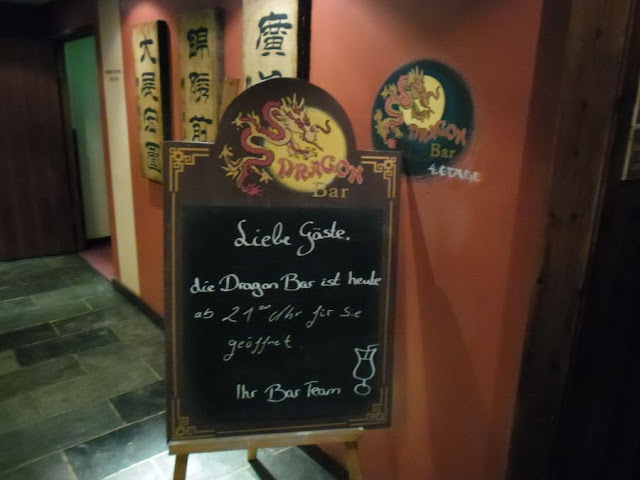 DRAGON
Bar
Liebe Gäste.
die Dragon Bar ist heute
ab 21°° Uhr für Sie
geöffnet.
Ihr Bar Team
DRAGON
Bar
1. ETAGE
大展宏圖
廣